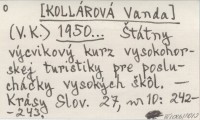 [KOLLÁROVÁ Vanda]
(V. K.) 1950... Štátny
výcvikový kurz vysokohor-
skej turistiky pre poslu-
cháčky vysokých škôl. —
Krásy Slov. 27, nr 10: 242-
-243.